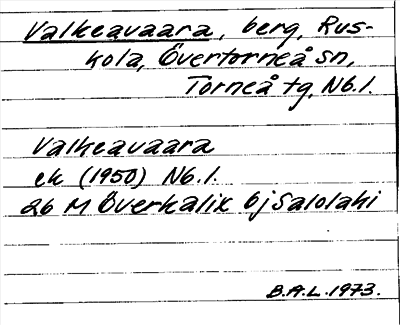 Valkeavaara, berg, Rus-
kola, Övertorneå sn,
Torneå tg, Nb.l.
Valkeavaara
ek (1950) Nb.l.
26 M Överkalix 6j Salolahi
B.A.L. 1973.